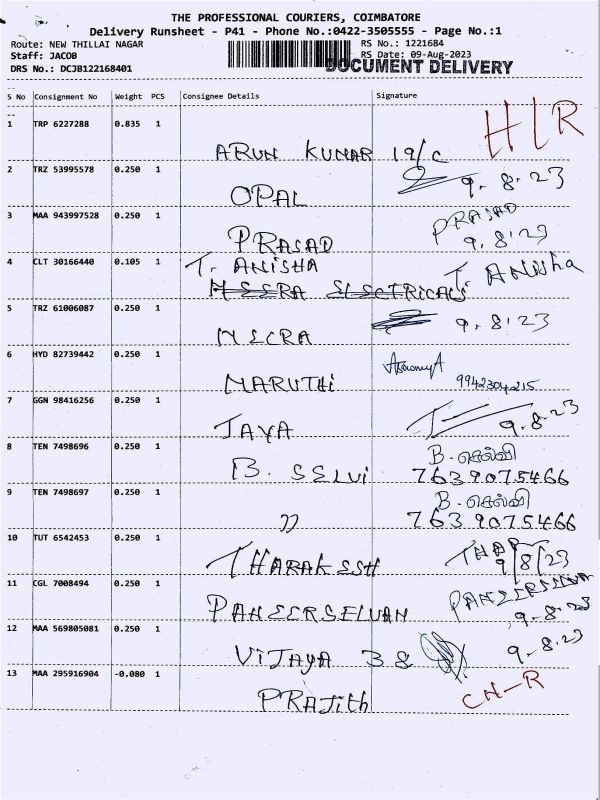 THE PROFESSIONAL COURIERS, COIMBATORE
Delivery Runsheet - P41 - Phone No.:0422-3505555 - Page No.:1
Route: NEW THILLAI NAGAR RS No.: 1221684
Staff: JACOB RS Date: 09-Aug-2023
DRS No.: DCJB122168401 DOCUMENT DELIVERY
S No Consignment No Weight PCS Consignee Details Signature
1 TRP 6227288 0.835 1 ARUN KUMAR 19/C HLR
2 TRZ 53995578 0.250 1 OPAL 9.8.23
3 MAA 943997528 0.250 1 PRASAD PRASAD
9.8.23
4 CLT 30166440 0.105 1 T. ANISHA T ANisha
MEERA ELECTRICALS
5 TRZ 61006087 0.250 1 MEERA 9.8.23
6 HYD 82739442 0.250 1 MARUTHi
9942304215
7 GGN 98416256 0.250 1 JAYA 9.8.23
8 TEN 7498696 0.250 1 B. SELVi B. செல்வி
7639075466
9 TEN 7498697 0.250 1 " B. செல்வி
7639075466
10 TUT 6542453 0.250 1 THARAKESH THAR
9/8/23
11 CGL 7008494 0.250 1 PANEERSELVAN PANEERSELVAN
9.8.23
12 MAA 569805081 0.250 1 ViJAYA 38 9.8.23
13 MAA 295916904 -0.080 1 PRAJith CN-R